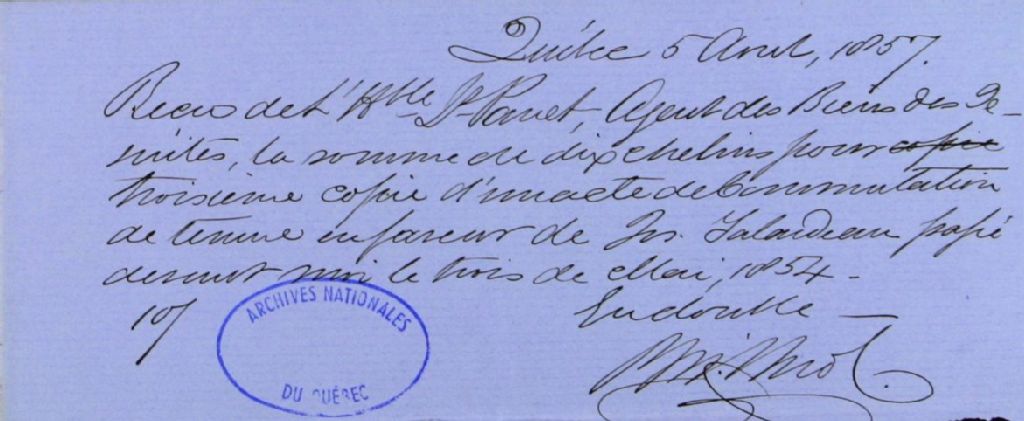 Québec 5 Avril, 1857.
Recus de l'Hble Ls Panet, Agent des Biens des Jé-
suites, la somme de dix chelins pour copie
troisième copie d'un acte de Commutation
de tenure en faveur de Jos. Falardeau passé
devant moi le trois de Mai, 1854 -
10/ En double —
ARCHIVES NATIONALES
DU QUÉBEC